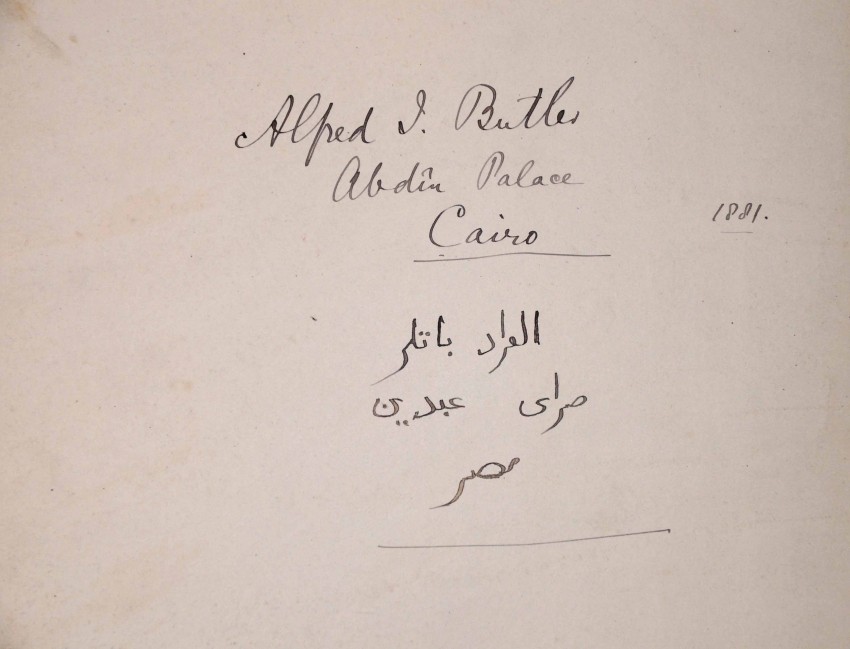 Alfred J. Butler
Abdîn Palace
Cairo
1881.
الفراد باتلر
صراى عبدين
مصر